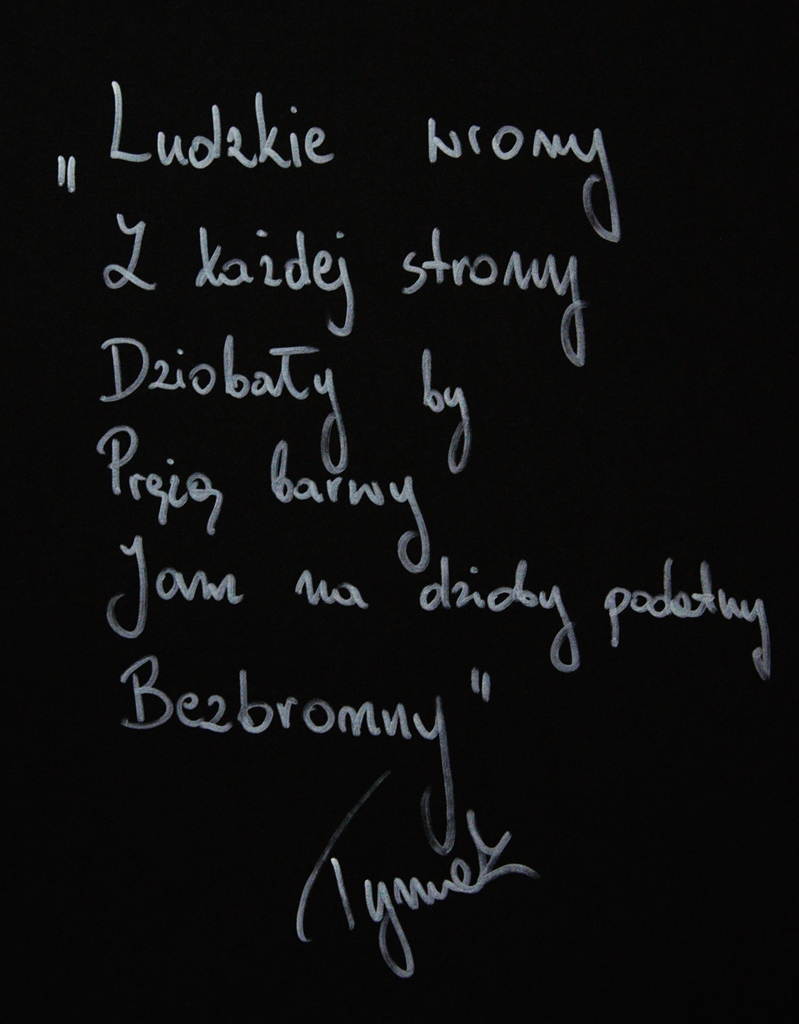 „Ludzkie wrony
Z każdej strony
Dziobały by
Prężą barwy
Jam na dzioby podatny
Bezbronny"
Tymek